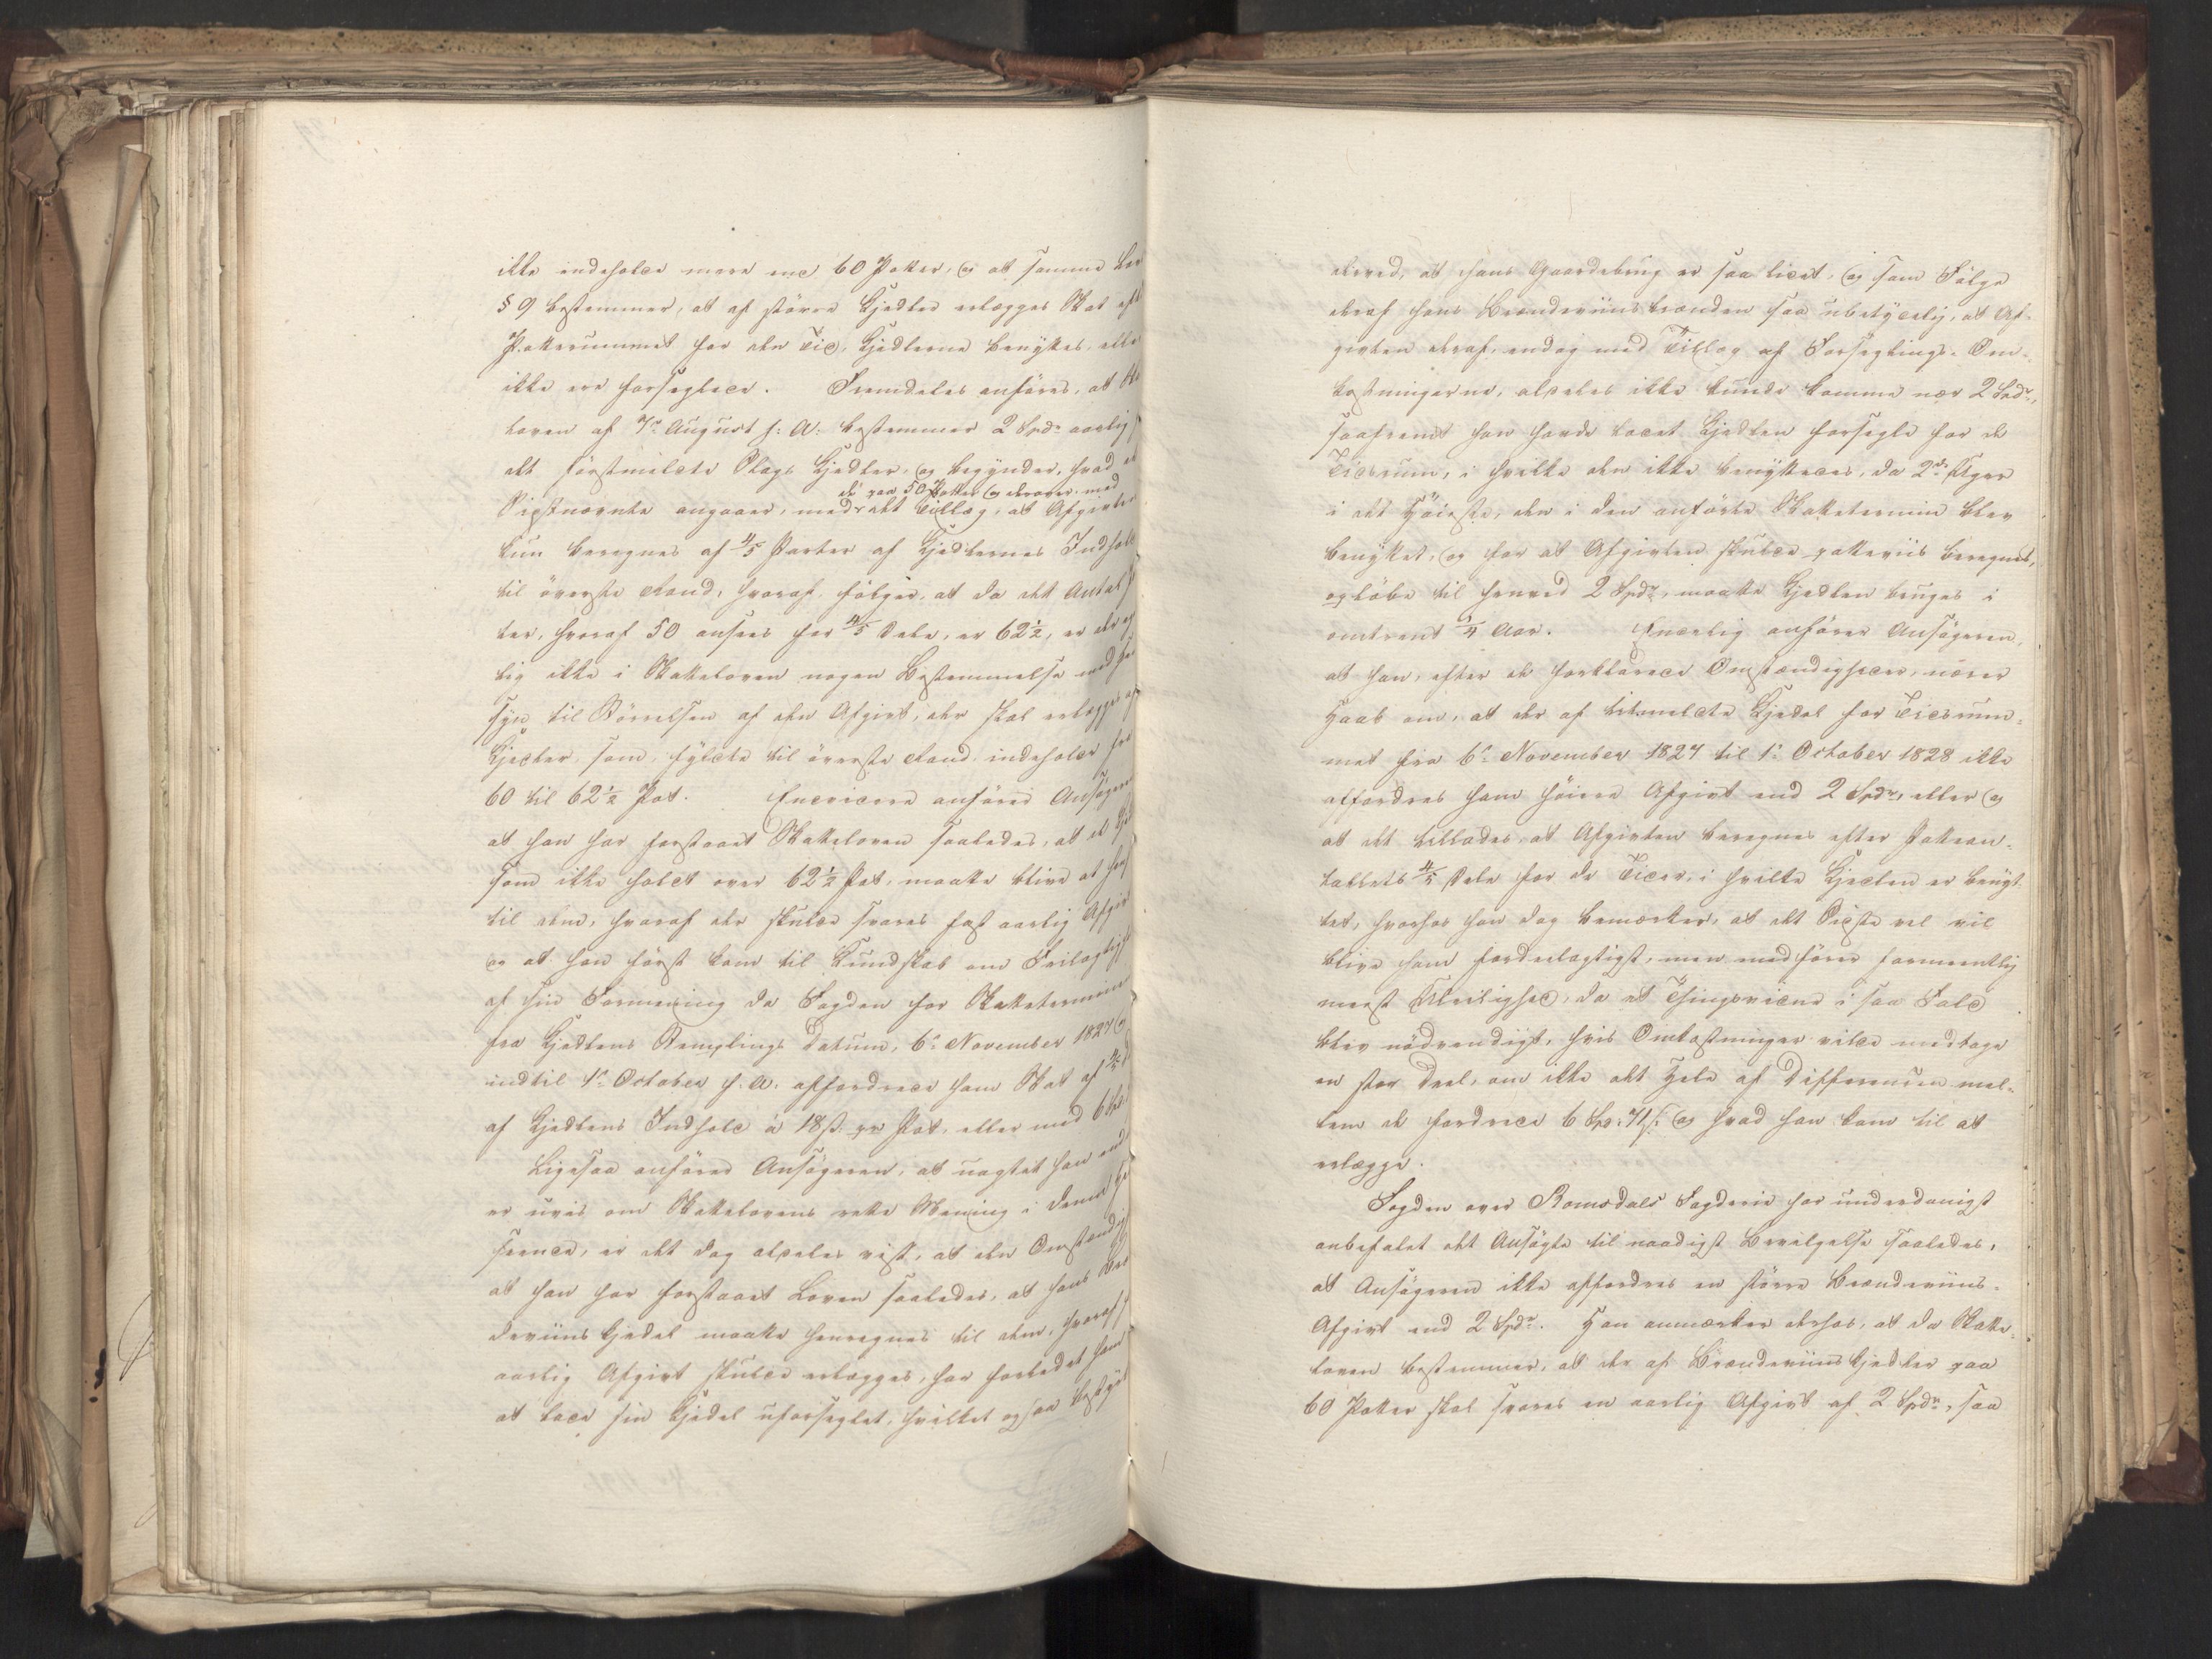 ikke indeholde mere end 60 Potter, og at samme
§ 9 bestemmer, at af større Kjedler erlægges Skat
Potterummet for den Tid, Kjedlerne benyttes, eller
ikke ere forseglede. Fremdeles anføres, at
Loven af 7de August f: A: bestemmer 2 Spdr aarlig
alt førstmeldte Slags Kjedler, og begynder, hvad
de paa 50 Potter og derover, med
Sidstnævnte angaaer, med det Tillæg, at Afgivten
kun beregnes af 4/5 Parter af Kjedlernes Indhold
til øverste Rand, hvoraf følger, at da det Antal
ter, hvoraf 50 ansees for 4/5 Dele, er 62 1/2, er
lig ikke i Skatteloven nogen Bestemmelse med
syn til Størrelsen af den Afgivt, der skal erlægges af
Kjedler, som, fyldte til øverste Rand, indeholde fra
60 til 62 1/2 Pot. Endvidere anfører Ansøgeren
at han har forstaaet Skatteloven saaledes, at
som ikke holdt over 62 1/2 Pot, maatte blive at
til dem, hvoraf der skulde svares fast aarlig Afgivt
og at han først kom til Kundskab om Feilagtigh
af sin Formening da Fogden for Skatteterminen
fra Kjedlens Stemplings Datum, 6te November 1827
indtil 1ste October f: A: affordrede ham Skat af 4/5
af Kjedlens Indhold à 18 ß pr Pot, eller med 6
Ligesaa anfører Ansøgeren, at uagtet han
er uvis om Skattelovens rette Mening i denne
seende, er det dog aldeles vist, at den Omstændig
at han har forstaaet Loven saaledes, at hans
deviins Kjedel maatte henregnes til dem, hvoraf
aarlig Afgivt skulde erlægges, har forledet ham
at lade sin Kjedel uforseglet, hvilket ogsaa
derved, at hans Gaardsbrug er saa lidet, og som Følge
deraf hans Brændeviinsbrænden saa ubetydelig, at Af-
givten deraf, endog med Tillæg af Forseglings-Om-
kostningerne, aldeles ikke kunde komme nær 2 Spdr,
saafremt han havde ladet Kjedlen forsegle for de
Tidsrum, i hvilke den ikke benyttedes, da 2de Uger
i det Høieste, den i den anførte Skattetermin blev
benyttet, og for at Afgivten skulde potteviis beregnet,
opløbe til henved 2 Spdr, maatte Kjedlen bruges i
omtrent 1/4 Aar. Endelig anfører Ansøgeren,
at han, efter de forklarede Omstændigheder, nærer
Haab om, at der af bemeldte Kjedel for Tidsrum-
met fra 6te November 1827 til 1ste October 1828 ikke
affordres ham høiere Afgivt end 2 Spdr, eller og
at det tillades, at Afgivten beregnes efter Pottean-
tallets 4/5 Dele for de Tider, i hvilke Kjedlen er benyt-
tet, hvorhos han dog bemærker, at det Sidste vel vil
blive ham fordeelagtigst, men medfører formeentlig
meest Uleilighed, da et Thingsvidne i saa Fald
blev nødvendigt, hvis Omkostninger vilde medtage
en stor Deel, om ikke det Hele af Differencen mel-
lem de fordrede 6 Spd: 71 ß: og hvad han kom til at
erlægge.
Fogden over Romsdals Fogderie har underdanigst
anbefalet det Ansøgte til naadigst Bevilgelse saaledes,
at Ansøgeren ikke affordres en større Brændeviins-
Afgivt end 2 Spdr. Han anmærker derhos, at da Skatte-
loven bestemmer, at der af Brændeviinskjedler paa
60 Potter skal svares en aarlig Afgivt af 2 Spdr, saa